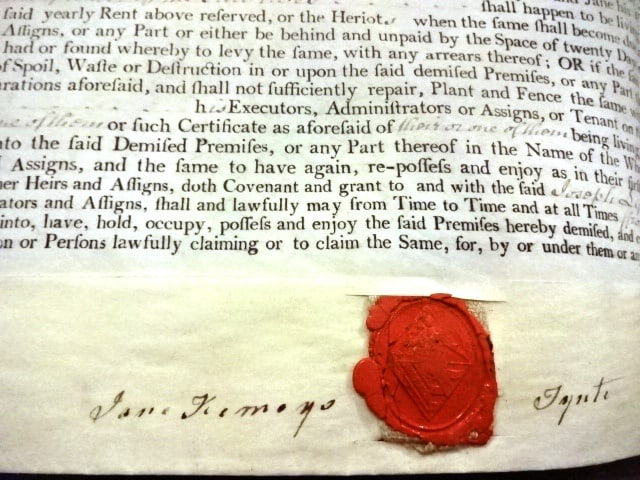 shall happen to be
ſaid yearly Rent above reſerved, or the Heriots when the ſame ſhall become
Aſſigns, or any Part or either be behind and unpaid by the Space of twenty Da
had or found whereby to levy the ſame, with any arrears thereof; OR if the
of Spoil, Waſte or Deſtruction in or upon the ſaid demiſed Premiſes, or any Part
arations aforeſaid, and ſhall not ſufficiently repair, Plant and Fence the ſame
his Executors, Adminiſtrators or Aſſigns, or Tenant
one of them or ſuch Certificate as aforeſaid of their or one of them being living
nto the ſaid Demiſed Premiſes, or any Part thereof in the Name of the W
Aſſigns, and the ſame to have again, re-poſſeſs and enjoy as in their
her Heirs and Aſſigns, doth Covenant and grant to and with the ſaid Joseph
ators and Aſſigns, ſhall and lawfully may from Time to Time and at all Times
into, have, hold, occupy, poſſeſs and enjoy the ſaid Premiſes hereby demiſed, and
on or Perſons lawfully claiming or to claim the Same, for, by or under them or
Jane Kemeys Tynte